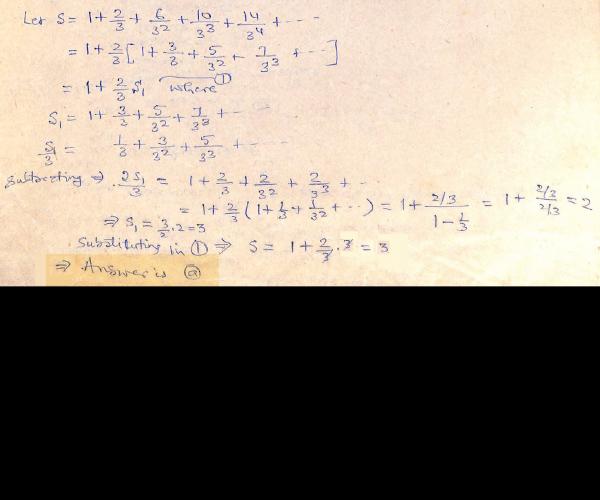 Let S = 1 + 2/3 + 6/3² + 10/3³ + 14/3⁴ + - - -
= 1 + 2/3 [ 1 + 3/3 + 5/3² + 7/3³ + - - ]
= 1 + 2/3 S₁ where ①
S₁ = 1 + 3/3 + 5/3² + 7/3³ + - - -
S₁/3 = 1/3 + 3/3² + 5/3³ + - - -
Subtracting ⇒ 2S₁/3 = 1 + 2/3 + 2/3² + 2/3³ + - -
= 1 + 2/3 (1 + 1/3 + 1/3² + - - ) = 1 + (2/3)/(1 - 1/3) = 1 + (2/3)/(2/3) = 2
⇒ S₁ = 3/2 . 2 = 3
Substituting in ① ⇒ S = 1 + 2/3 . 3 = 3
⇒ Answer is ⓐ